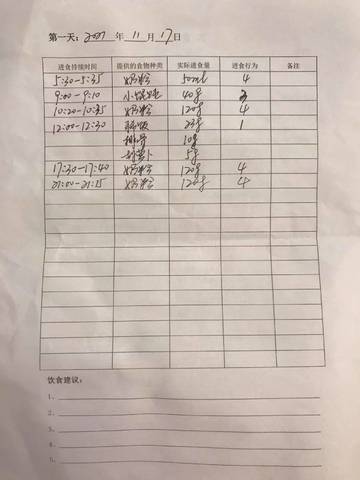 第一天：2021 年 11 月 17 日
进食持续时间 提供的食物种类 实际进食量 进食行为 备注
5:30-5:35 奶粉 50ml 4
9:00-9:10 小馄饨 40g 3
10:20-10:35 奶粉 120g 4
12:00-12:30 软饭 23g 1
排骨 10g
胡萝卜 5g
17:30-17:40 奶粉 120g 4
21:00-21:15 奶粉 120g 4
饮食建议：
1、
2、
3、
4、
5、